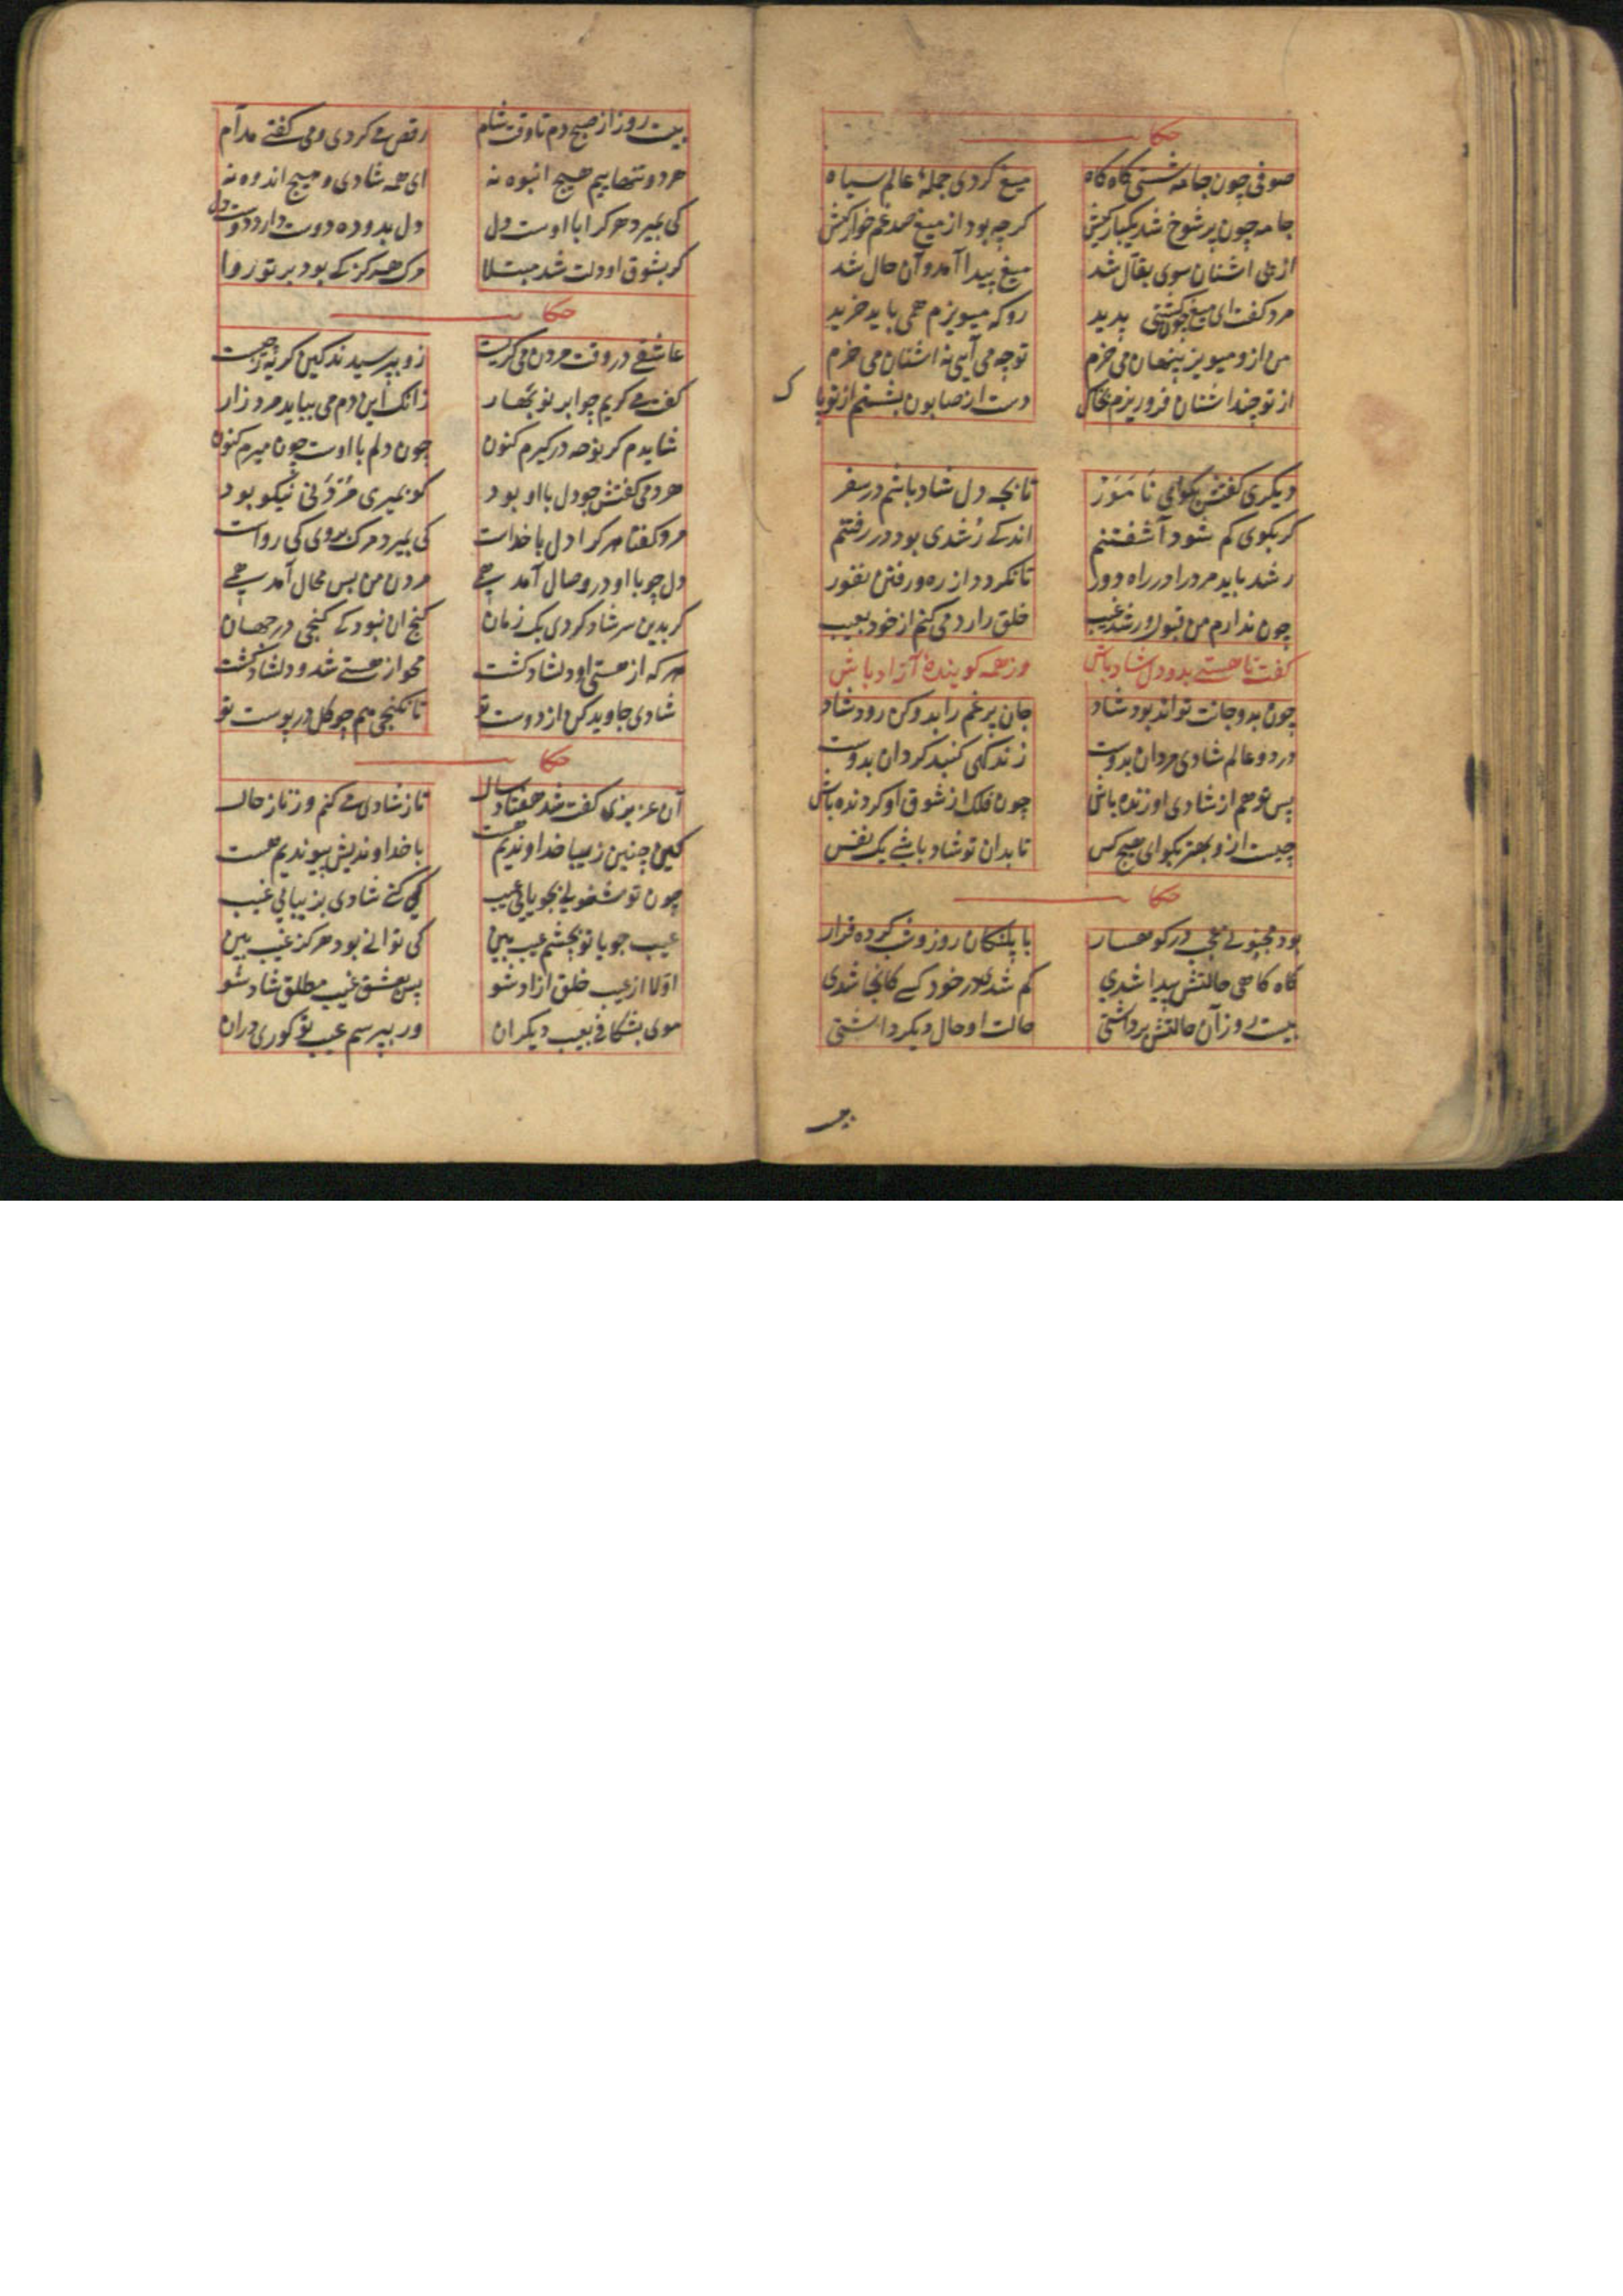 حکایت
صوفی چون جامه شستی گاه گاه میغ کردی جملهٔ عالم سیاه
جامه چون پر شوخ شد یکبارکیش کرچه بود از میغ صد غم خوارکیش
از پی اشنان سوی بقال شد میغ پیدا آمد و آن حال شد
مرد گفت ای میغ چون گشتی پدید رو که میویزم همی باید خرید
من ازو میویز پنهان می خرم تو چه می آیی نه اشنان می خرم
از تو چند اشنان فرو ریزم بخاک دست از صابون بشستم از تو پاک
دیگری گفتش بگوی ای نامور تا بچه دل شاد باشم در سفر
گر بگوی کم شود آشفتنم اندکی رشدی بود در رفتنم
رشد باید مرد را در راه دور تا نگردد از ره و رفتن نفور
چون ندارم من قبول و رشد غیب خلق را رد می کنم از خود بعیب
گفت تا هستی بدو دل شاد باش وز همه گوینده آزاد باش
چون بدو جانت تواند بود شاد جان پر غم را بدو کن زود شاد
در دو عالم شادی مردان بدوست زندگی گنبد گردان بدوست
پس تو هم از شادی او زنده باش چون فلک از شوق او گردنده باش
چیست ازو بهتر بگو ای هیچ کس تا بدان تو شاد باشی یک نفس
حکایت
بود مجنونی عجب در کوهسار با پلنگان روز و شب کرده قرار
گاه گاهی حالتش پیدا شدی گم شدی در خود کسی کانجا شدی
بیست روز آن حالتش برداشتی حالت او حال دیگر داشتی
بیست روز از صبح دم تا وقت شام رقص می کردی و می گفتی مدام
هر دو تنهاییم هیچ انبوه نه ای همه شادی و هیچ اندوه نه
کی بمیرد هر کرا با اوست دل دل بدو ده دوست دارد دوست دل
گر بشوق او دلت شد مبتلا مرگ هرگز کی بود بر تو روا
حکایت
عاشقی در وقت مردن می گریست زو بپرسیدند کین گریه ز چیست
گفت می گریم چو ابر نو بهار زانک این دم می بباید مرد زار
شایدم گر نوحه درگیرم کنون چون دلم با اوست چون میرم کنون
همدمی گفتش چو دل با او بود گو بمیری مردنی نیکو بود
مرد گفتا هر کرا دل با خداست کی بمیرد مرگ بروی کی رواست
دل چو با او در وصال آمد همی مردن من بس محال آمد همی
گر بدین سر شاد گردی یک زمان گنج ان نبود که گنجی در جهان
هر که از هستی او دلشاد گشت محو از هستی شد و دلشاد گشت
شادی جاوید کن از دوست تو تا نگنجی هم چو گل در پوست تو
حکایت
آن عزیزی گفت شد هفتاد سال تا ز شادی می کنم وز ناز حال
کین چنین زیبا خداوندیم هست با خداوندیش پیوندیم هست
چون تو مشغولی بجویایی عیب کی کنی شادی بزیبایی غیب
عیب جویا تو بچشم عیب بین کی توانی بود هرگز غیب بین
اولا از عیب خلق ازاد شو پس بعشق غیب مطلق شاد شو
موی بشکافی بعیب دیگران ور بپرسم عیب تو کوری دران